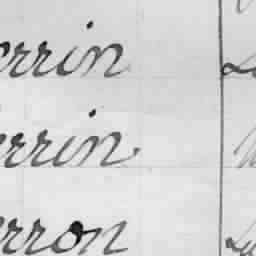 errin
errin
erron